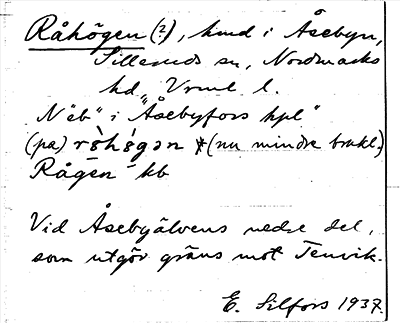 Råhögen (?), hmd i Åsebyn,
Silleruds sn, Nordmarks
hd, Vrml l.
N "eb" i "Åsebyfors hpl"
(pa) röhö́gən (nu mindre brukl.)
Rågen - kb
Vid Åsebyälvens nedre del,
som utgör gräns mot Tenvik.
E. Silfors 1937.